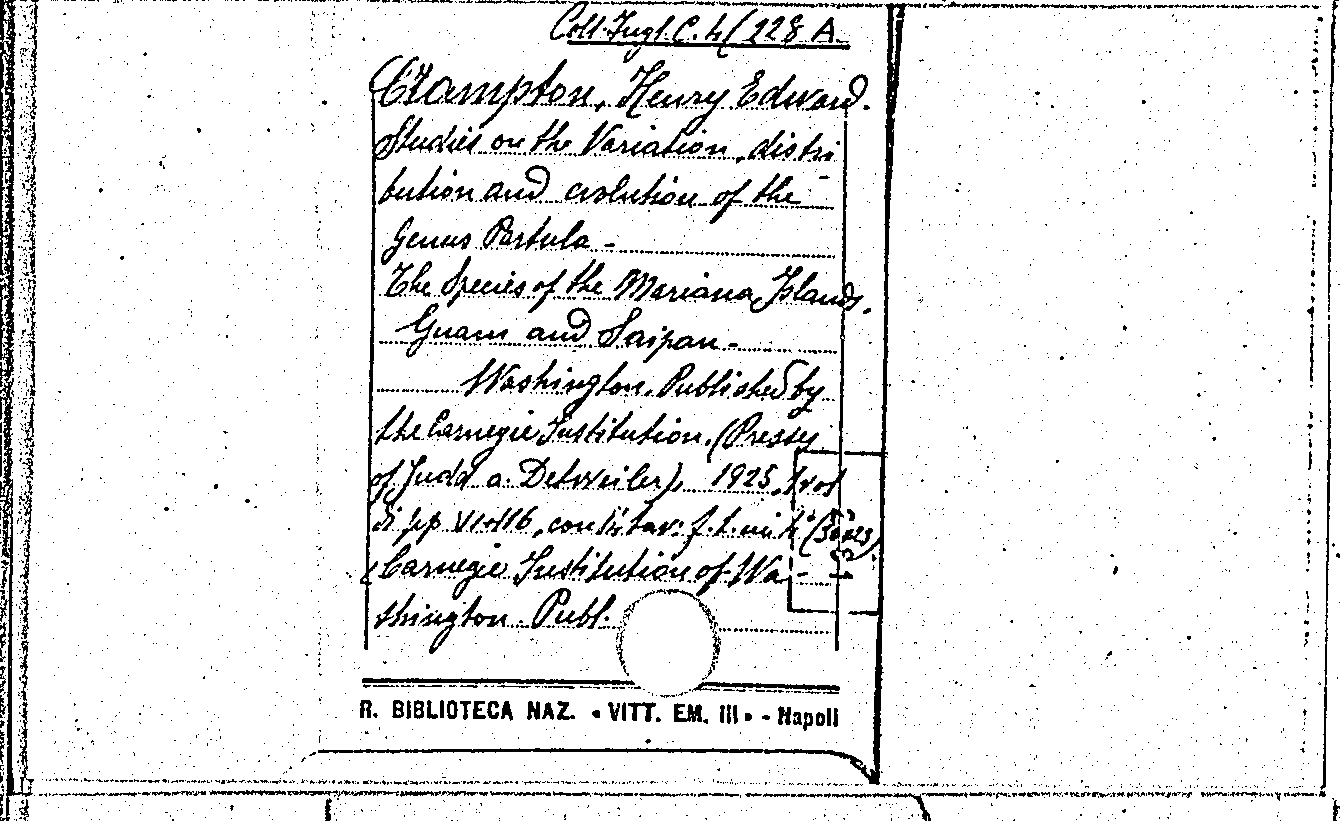 Coll. Ingl. C. 4/228 A
Crampton, Henry Edward.
Studies on the Variation, distri
bution and evolution of the
Genus Partula -
The Species of the Mariana Islands.
Guam and Saipan -
Washington. Published by
the Carnegie Institution. (Presses
of Judd a. Detweiler), 1925, 1 vol
di pp VI+116, con tav: f.t. in 4° (30x23)
(Carnegie Institution of Wa-
shington Publ.
R. BIBLIOTECA NAZ. « VITT. EM. III » - Napoli